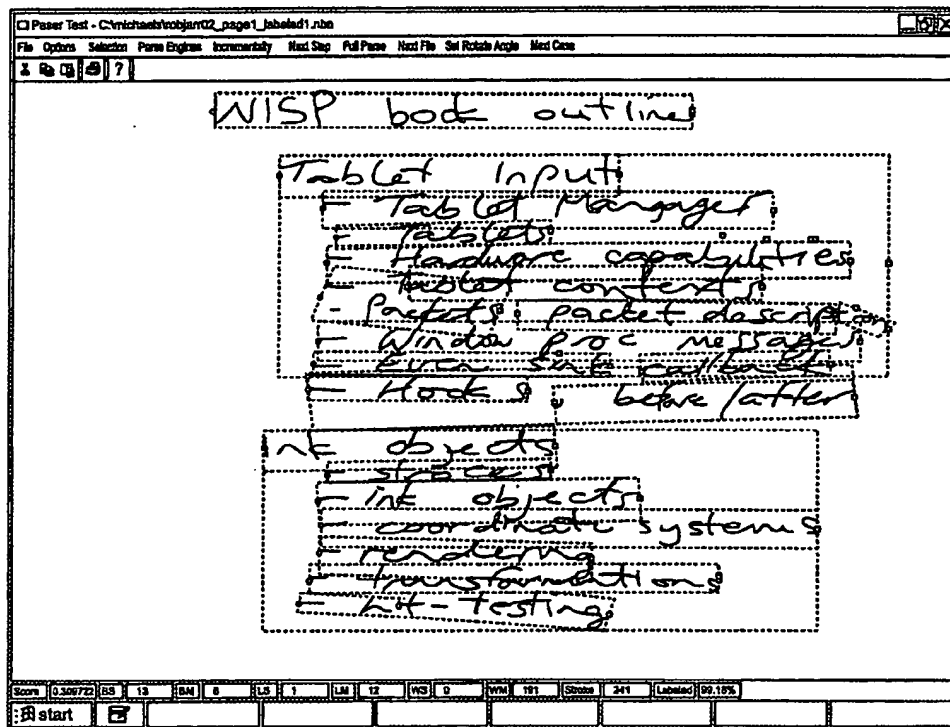 Paser Test - C:\michaels\robjarr02_page1_labaled1.nbn
File Options Selection Parse Engines Incrementally Next Step Full Parse Next File Set Rotate Angle Next Case
?
WISP book outline
Tablet Input
- Tablet Mangager
- Tablets
- Hardware capabilities
- Tablet contexts
- Packets packet description
- Window proc messages
- Even sink callback
- Hooks before/after
Ink objects
- strokes
- ink objects
- coordinate systems
- rendering
- transformations
- hit-testing
Score 0.309722 BS 13 BM 6 LS 1 LM 12 WS 0 WM 191 Stroke 341 Labeled 99.15%
start